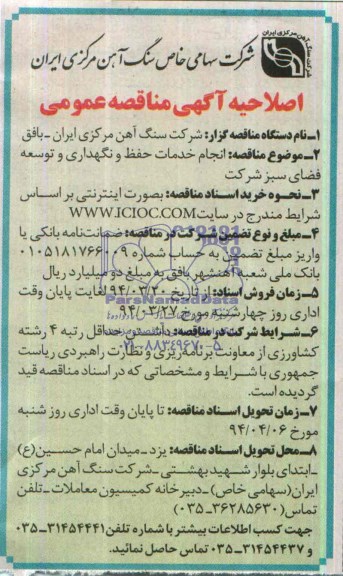 شرکت سنگ آهن مرکزی ایران
شرکت سهامی خاص سنگ آهن مرکزی ایران
اصلاحیه آگهی مناقصه عمومی
۱ـ نام دستگاه مناقصه گزار: شرکت سنگ آهن مرکزی ایران ـ بافق
۲ـ موضوع مناقصه: انجام خدمات حفظ و نگهداری و توسعه
فضای سبز شرکت
۳ـ نحوه خرید اسناد مناقصه: بصورت اینترنتی بر اساس
شرایط مندرج در سایت WWW.ICIOC.COM
۴ـ مبلغ و نوع تضمین شرکت در مناقصه: ضمانت‌نامه بانکی یا
واریز مبلغ تضمین به حساب شماره ۰۱۰۵۱۸۱۷۶۶۰۰۹
بانک ملی شعبه آهنشهر بافق به مبلغ دو میلیارد ریال
۵ـ زمان فروش اسناد: از تاریخ ۹۴/۰۳/۲۰ لغایت پایان وقت
اداری روز چهارشنبه مورخ ۹۴/۰۳/۲۷
ParsNamadData
۰۲۱-۸۸۳۴۹۶۷۰-۵
۶ـ شرایط شرکت در مناقصه: داشتن حداقل رتبه ۴ رشته
کشاورزی از معاونت برنامه‌ریزی و نظارت راهبردی ریاست
جمهوری با شرایط و مشخصاتی که در اسناد مناقصه قید
گردیده است.
۷ـ زمان تحویل اسناد مناقصه: تا پایان وقت اداری روز شنبه
مورخ ۹۴/۰۴/۰۶
۸ـ محل تحویل اسناد مناقصه: یزد ـ میدان امام حسین (ع)
ـ ابتدای بلوار شهید بهشتی ـ شرکت سنگ آهن مرکزی
ایران (سهامی خاص) ـ دبیرخانه کمیسیون معاملات ـ تلفن
تماس (۳۶۲۸۵۶۳۰ـ۰۳۵)
جهت کسب اطلاعات بیشتر با شماره تلفن ۳۱۴۵۴۴۴۱ـ۰۳۵
و ۳۱۴۵۴۴۳۷ـ۰۳۵ تماس حاصل نمائید.